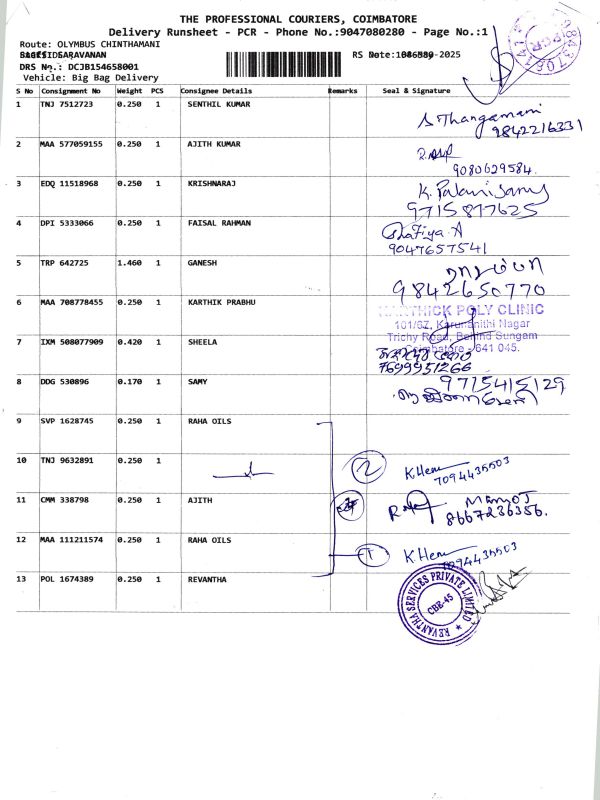 THE PROFESSIONAL COURIERS, COIMBATORE
Delivery Runsheet - PCR - Phone No.:9047080280 - Page No.:1
Route: OLYMBUS CHINTHAMANI
SARAVANAN
RS Date: -2025
DRS No.: DCJB154658001
Vehicle: Big Bag Delivery
S No Consignment No Weight PCS Consignee Details Remarks Seal & Signature
1 TNJ 7512723 0.250 1 SENTHIL KUMAR S Thangamani
9842216331
2 MAA 577059155 0.250 1 AJITH KUMAR
9080629584.
3 EDQ 11518968 0.250 1 KRISHNARAJ K. Palanisamy
9715897625
4 DPI 5333066 0.250 1 FAISAL RAHMAN Shafiya. A
9047657541
5 TRP 642725 1.460 1 GANESH
9842650770
6 MAA 708778455 0.250 1 KARTHIK PRABHU KARTHICK POLY CLINIC
101/67, Karunanithi Nagar
Trichy Road, Behind Sungam
Coimbatore - 641 045.
7 IXM 508077909 0.420 1 SHEELA
7699951266
8 DDG 530896 0.170 1 SAMY 9715415129
9 SVP 1628745 0.250 1 RAHA OILS
10 TNJ 9632891 0.250 1 2 K Hem
7094435503
11 CMM 338798 0.250 1 AJITH Manoj
8667236356.
12 MAA 111211574 0.250 1 RAHA OILS 1 K Hem
7094435503
13 POL 1674389 0.250 1 REVANTHA
REVANTHA SERVICES PRIVATE LIMITED
CBE-45